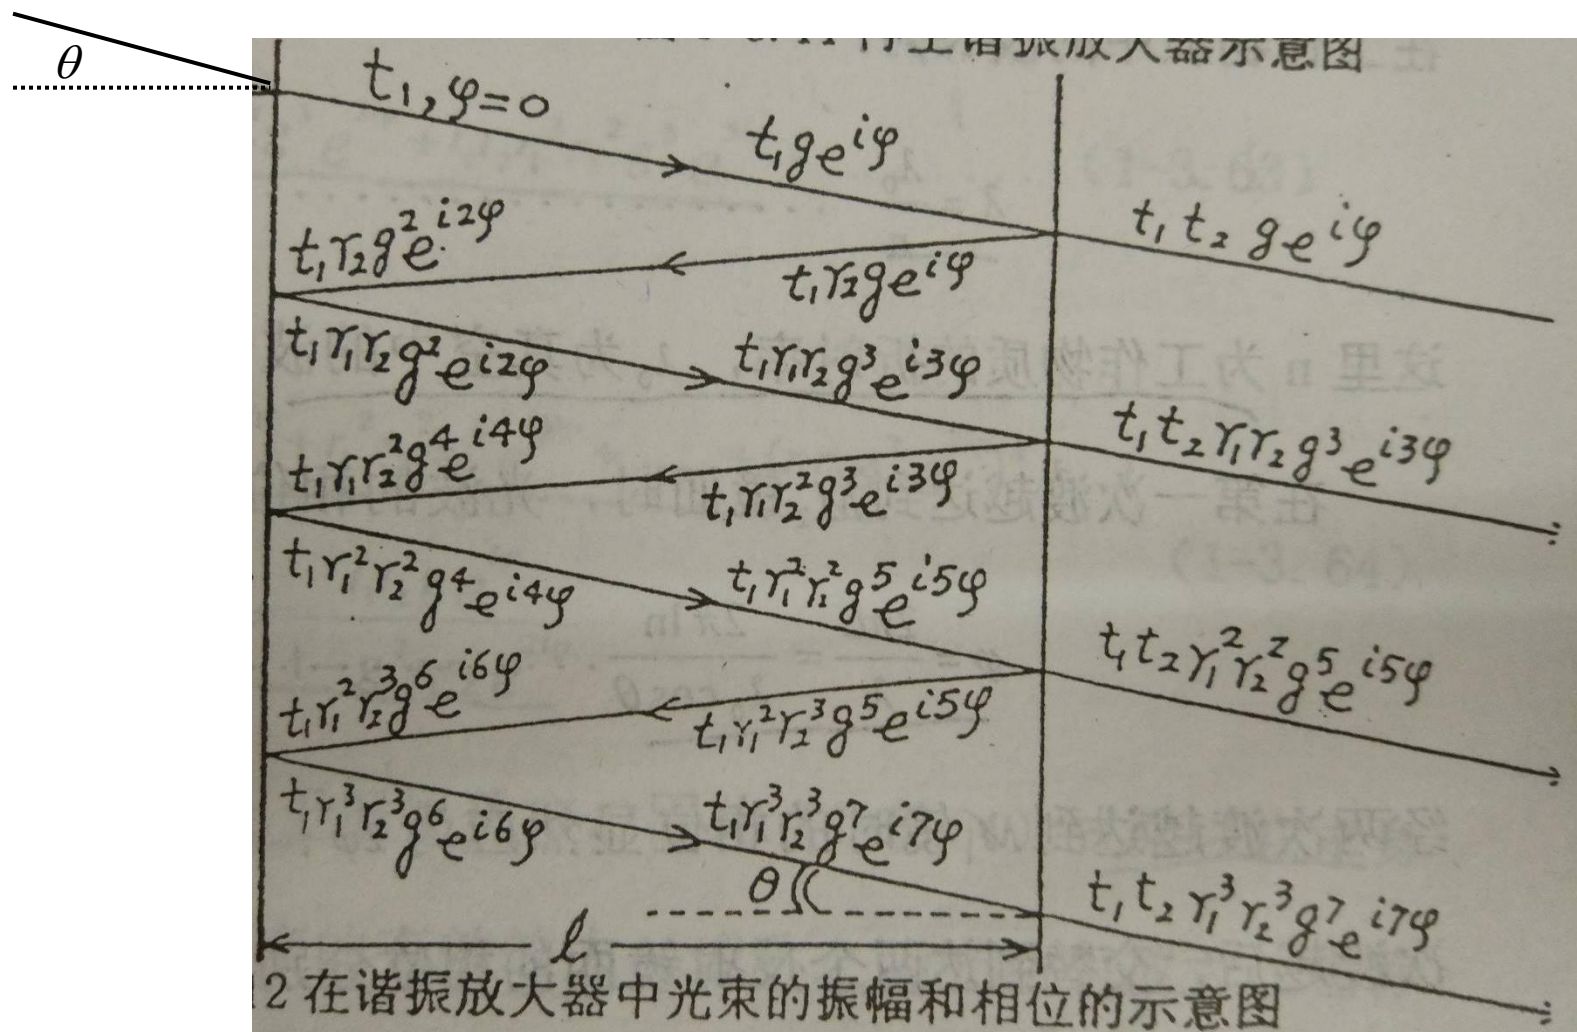 θ
再生谐振放大器示意图
t₁, φ=0
t₁geⁱᵠ
t₁t₂geⁱᵠ
t₁r₂g²eⁱ²ᵠ
t₁r₂geⁱᵠ
t₁r₁r₂g²eⁱ²ᵠ
t₁r₁r₂g³eⁱ³ᵠ
t₁t₂r₁r₂g³eⁱ³ᵠ
t₁r₁r₂²g⁴eⁱ⁴ᵠ
t₁r₁r₂²g³eⁱ³ᵠ
t₁r₁²r₂²g⁴eⁱ⁴ᵠ
t₁r₁²r₂²g⁵eⁱ⁵ᵠ
t₁t₂r₁²r₂²g⁵eⁱ⁵ᵠ
t₁r₁²r₂³g⁶eⁱ⁶ᵠ
t₁r₁²r₂³g⁵eⁱ⁵ᵠ
t₁r₁³r₂³g⁶eⁱ⁶ᵠ
t₁r₁³r₂³g⁷eⁱ⁷ᵠ
θ
t₁t₂r₁³r₂³g⁷eⁱ⁷ᵠ
ℓ
12 在谐振放大器中光束的振幅和相位的示意图